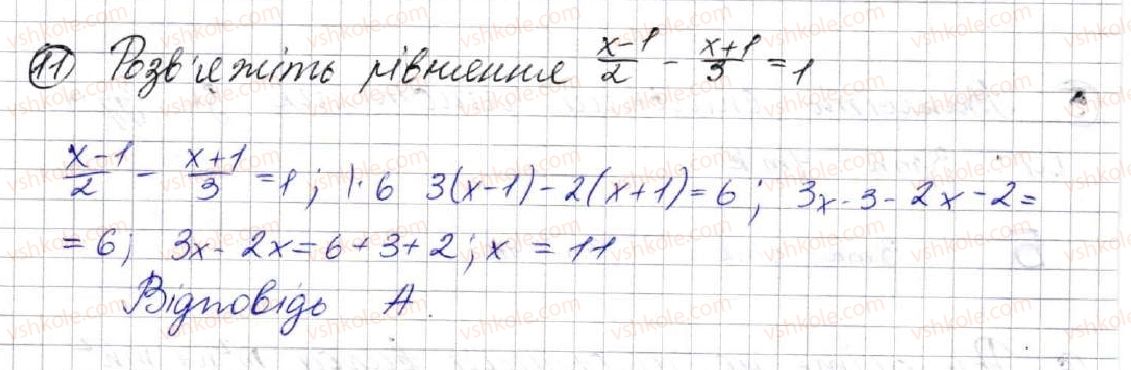 11 Розв'яжіть рівняння (x-1)/2 - (x+1)/3 = 1
(x-1)/2 - (x+1)/3 = 1; |·6 3(x-1)-2(x+1)=6; 3x-3-2x-2=
=6; 3x-2x=6+3+2; x = 11
Відповідь А.